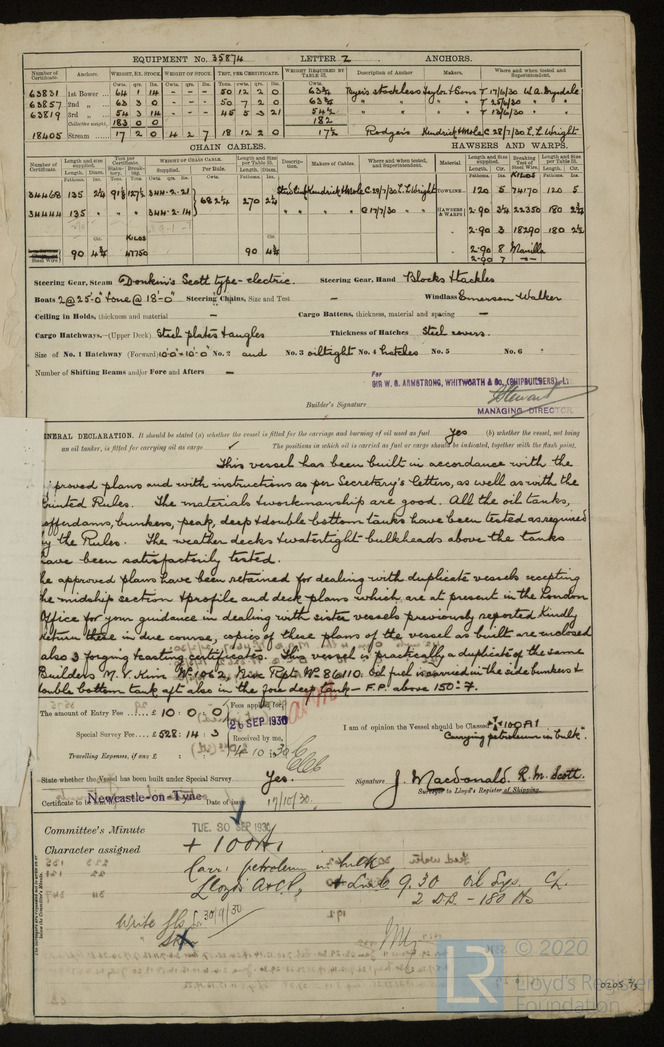 EQUIPMENT No. 35874 LETTER Z ANCHORS.
Number of Certificate. Anchors. WEIGHT, EX. STOCK. WEIGHT OF STOCK. TEST, PER CERTIFICATE. WEIGHT REQUIRED BY TABLE 31. Description of Anchor. Makers. Where and when tested and Superintendent.
Cwts. qrs. lbs. Cwts. qrs. lbs. Tons. cwts. qrs. lbs. Cwts.
63831 1st Bower 64 1 14 - - - 50 12 2 0 63¾ Byers stockless Taylor & Sons T 17/6/30 W.A. Drysdale
63857 2nd " 63 3 0 - - - 50 7 2 0 63¾ " " " " T 25/6/30 " "
63819 3rd " 54 3 14 - - - 45 5 3 21 54½ " " " " T 13/6/30 " "
Collective weight. 183 0 0 182
18405 Stream 17 2 0 4 2 7 18 12 2 0 17½ Rodger's Kendrick & Mole C 28/7/30 L.L. Wright
CHAIN CABLES. HAWSERS AND WARPS.
34468 135 2¼ 91⅛ 127½ 344-2-21 682¼ 270 2¼ Stud Link Kendrick & Mole C 29/7/30 L.L. Wright TOWLINE 120 5 74170 120 5
34444 135 " " " 344-2-14 " " " C 17/7/30 " " HAWSERS & WARPS 2-90 3¼ 22350 180 2¾
2-90 3 18290 180 2½
90 4¾ KILOS 47750 90 4¾ 2-90 8 Manilla
2-90 7 "
Steering Gear, Steam Donkin's Scott type - electric. Steering Gear, Hand Blocks & tackles
Boats 2 @ 25'-0" & one @ 18'-0" Steering Chains, Size and Test — Windlass Emerson Walker
Ceiling in Holds, thickness and material — Cargo Battens, thickness, material and spacing —
Cargo Hatchways.—(Upper Deck) Steel plates & angles Thickness of Hatches Steel covers.
Size of No. 1 Hatchway (Forward) 10'-0" x 10'-0" No. 2 and No. 3 oiltight No. 4 hatches No. 5 No. 6
Number of Shifting Beams and/or Fore and Afters —
For
SIR W. G. ARMSTRONG, WHITWORTH & Co. (SHIPBUILDERS), LT
Builder's Signature
MANAGING DIRECTOR.
NERAL DECLARATION. It should be stated (a) whether the vessel is fitted for the carriage and burning of oil used as fuel Yes (b) whether the vessel, not being
an oil tanker, is fitted for carrying oil as cargo ✓ The positions in which oil is carried as fuel or cargo should be indicated, together with the flash point.
This vessel has been built in accordance with the
proved plans and with instructions as per Secretary's letters, as well as with the
rinted Rules. The materials & workmanship are good. All the oil tanks,
offerdams, bunkers, peak, deep & double bottom tanks have been tested as required
y the Rules. The weather decks & watertight bulkheads above the tanks
ave been satisfactorily tested.
he approved plans have been retained for dealing with duplicate vessels excepting
he midship section & profile and deck plans which are at present in the London
Office for your guidance in dealing with sister vessels previously reported. Kindly
return these in due course, copies of these plans of the vessel as built are enclosed
also 3 forging & casting certificates. This vessel is practically a duplicate of the same
Builders M.V. No 1062, Rpt. No 86110. Oil fuel is carried in the side bunkers &
ouble bottom tank aft also in the fore deep tank — F.P. above 150° F.
The amount of Entry Fee £ 10 : 0 : 0 Fees applied for,
26 SEP 1930
Special Survey Fee £ 528 : 14 : 3 Received by me,
Travelling Expenses, if any £ 4.10.30
I am of opinion the Vessel should be Classed ✠100A1
"Carrying petroleum in bulk".
State whether the Vessel has been built under Special Survey Yes. Signature J. Macdonald. R.M. Scott.
Surveyor to Lloyd's Register of Shipping.
Certificate to be Newcastle-on-Tyne Date of 17/10/30.
Committee's Minute TUE. 30 SEP 1930
Character assigned + 100A1
Carr. petroleum in bulk
Lloyd's A & CP, + LMC 9.30 Oil Eng. CL.
2 DB - 180 lbs
Write 30/9/30
© 2020
Lloyd's Register
Foundation
LR
0205 3/3